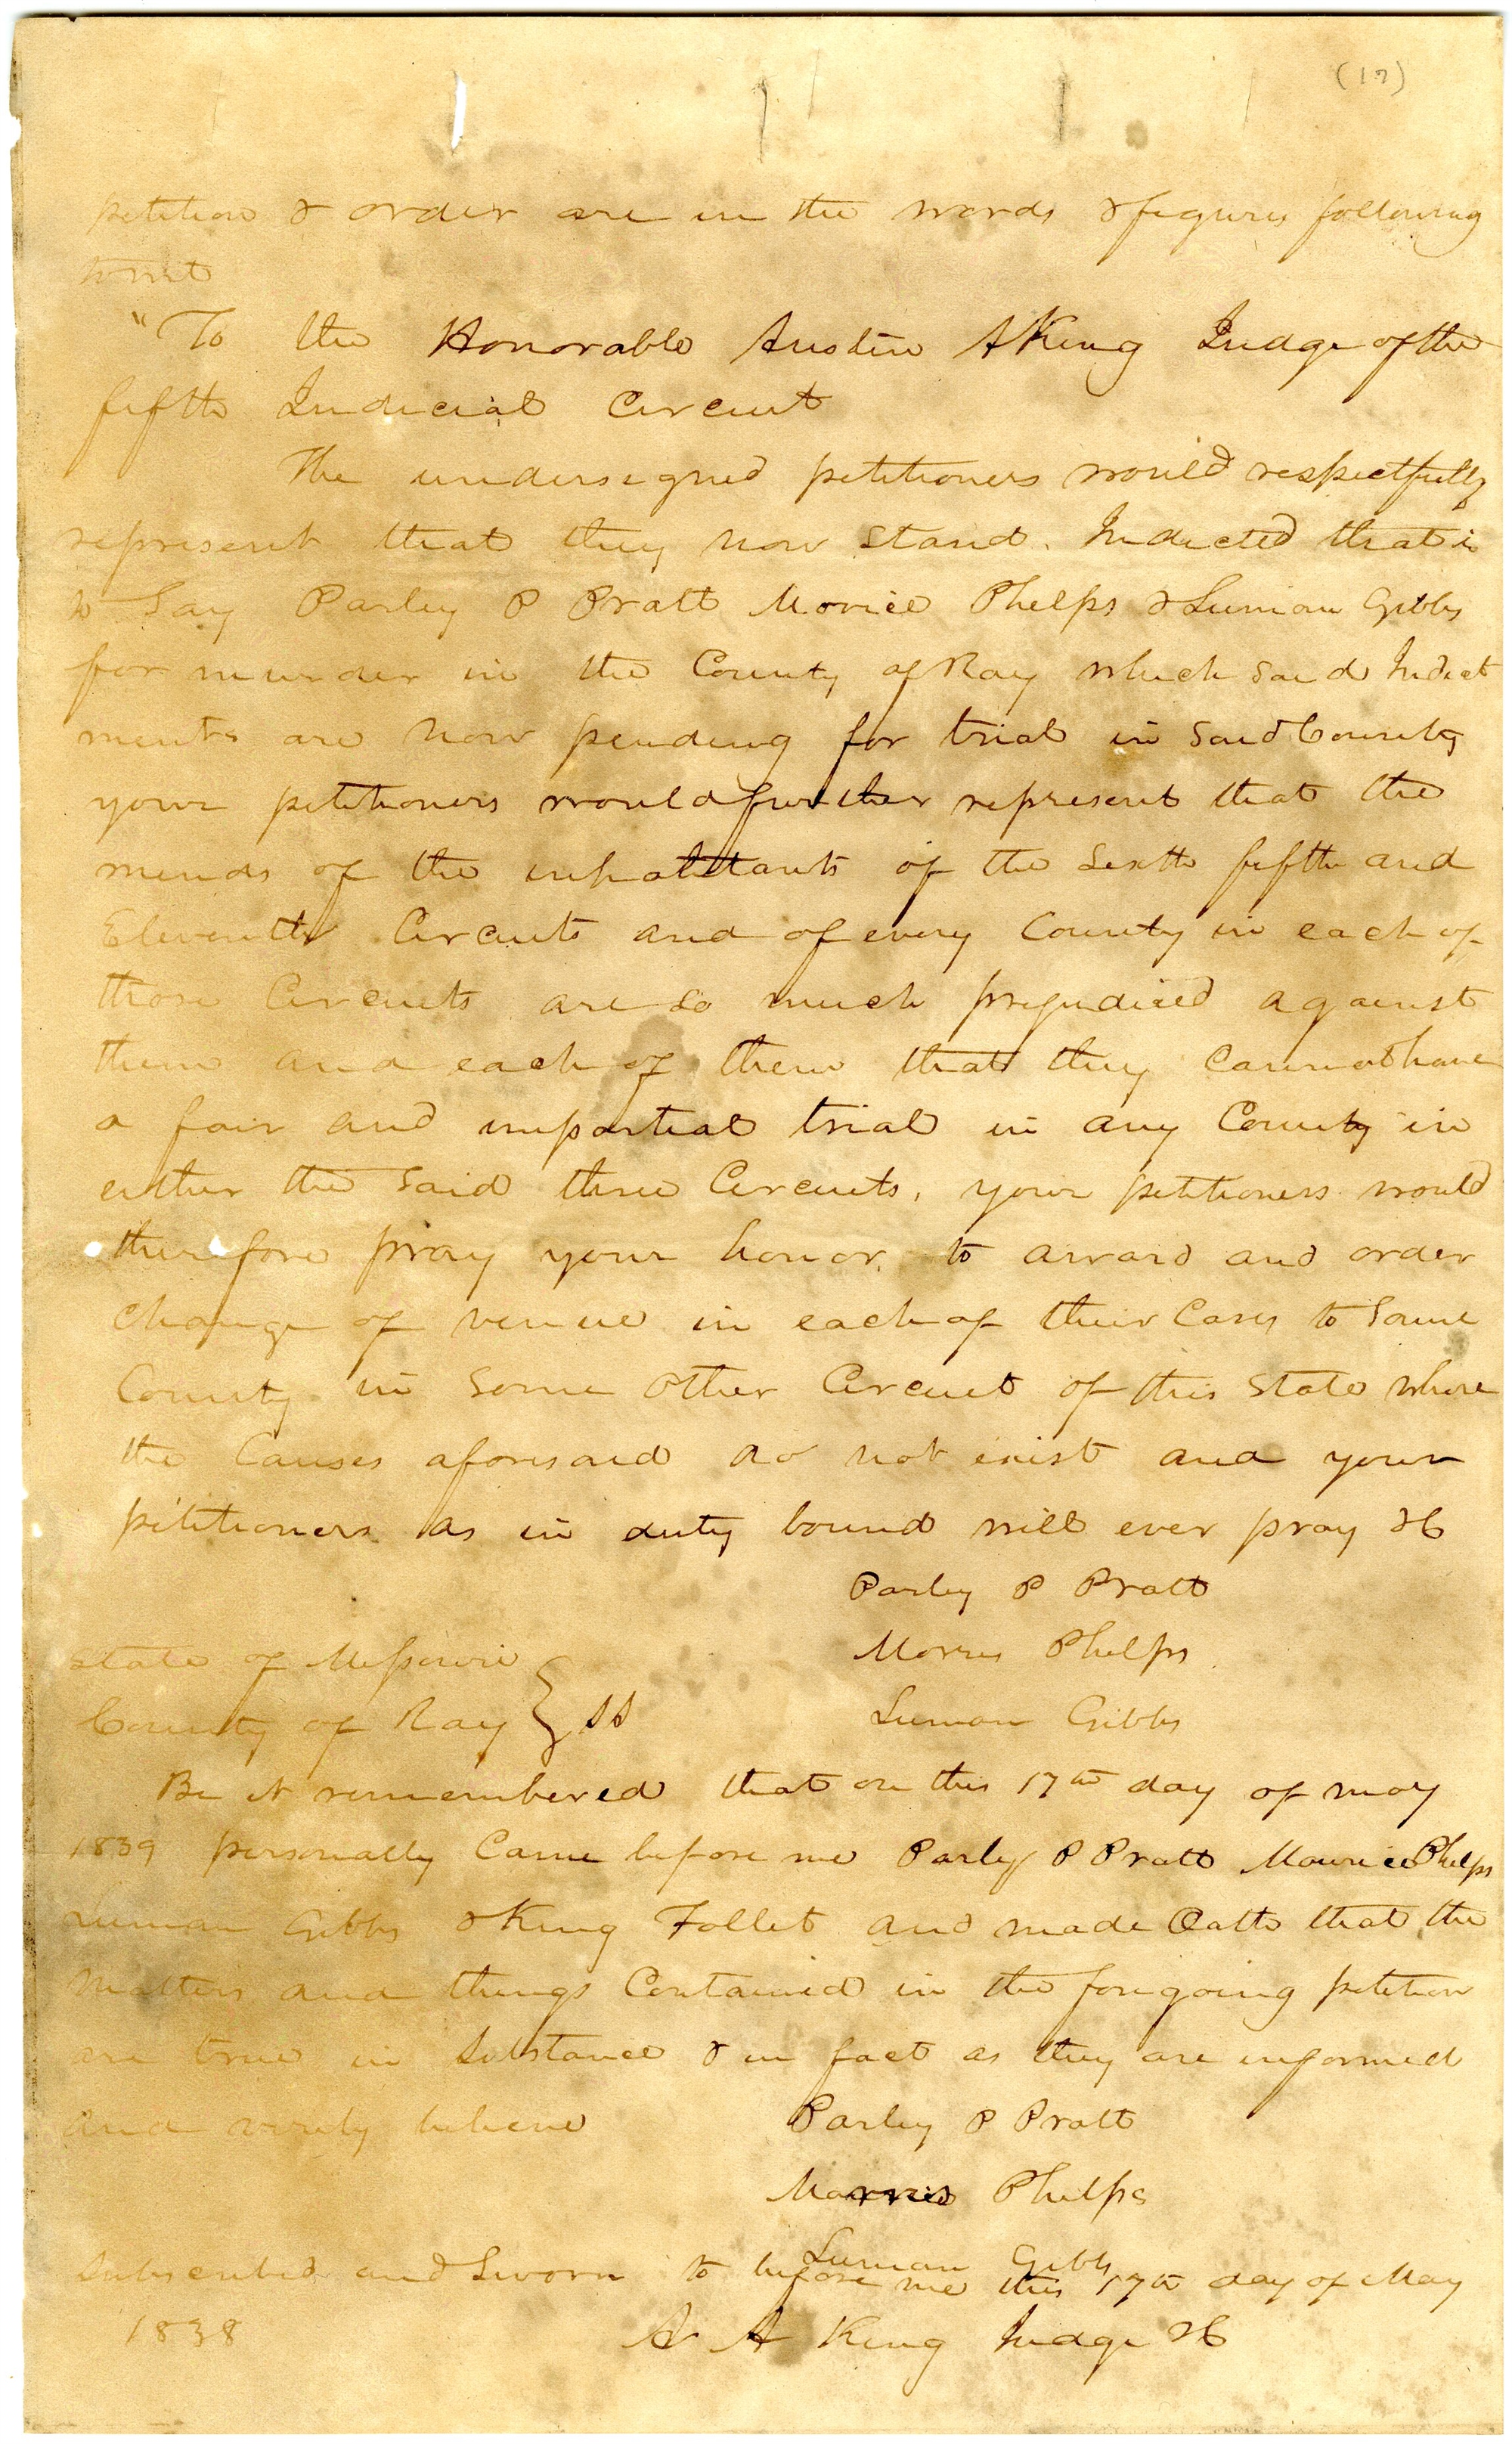 (17)
petition & order are in the words & figures following
towit
"To the Honorable Austin A King Judge of the
fifth Judicial Circuit
The undersigned petitioners would respectfully
represent that they now stand. Indicted that is
to Say Parley P Pratt Morice Phelps & Luman Gibbs
for murder in the County of Ray which said Indict
ments are now pending for trial in said County
your petitioners would further represent that the
minds of the inhabitants of the Sixth fifth and
Eleventh Circuits and of every County in each of
those Circuits are so much prejudiced against
them and each of them that they cannot have
a fair and impartial trial in any County in
either the said three Circuits, your petitioners would
therefore pray your honor, to award and order
change of venue in each of their Cases to Some
County in Some other Circuit of this State where
the Causes aforesaid do not exist and your
petitioners as in duty bound will ever pray &C
Parley P Pratt
Morris Phelps
Luman Gibbs
State of Missouri
County of Ray } SS
Be it remembered that on this 17th day of may
1839 personally Came before me Parley P Pratt Maurice Phelps
Luman Gibbs & King Follet and made Oath that the
matters and things Contained in the foregoing petition
are true in Substance & in fact as they are informed
and verily believe
Parley P Pratt
Morris Phelps
Luman Gibbs
Subscribed and Sworn to before me this 17th day of May
1838
A A King Judge &C